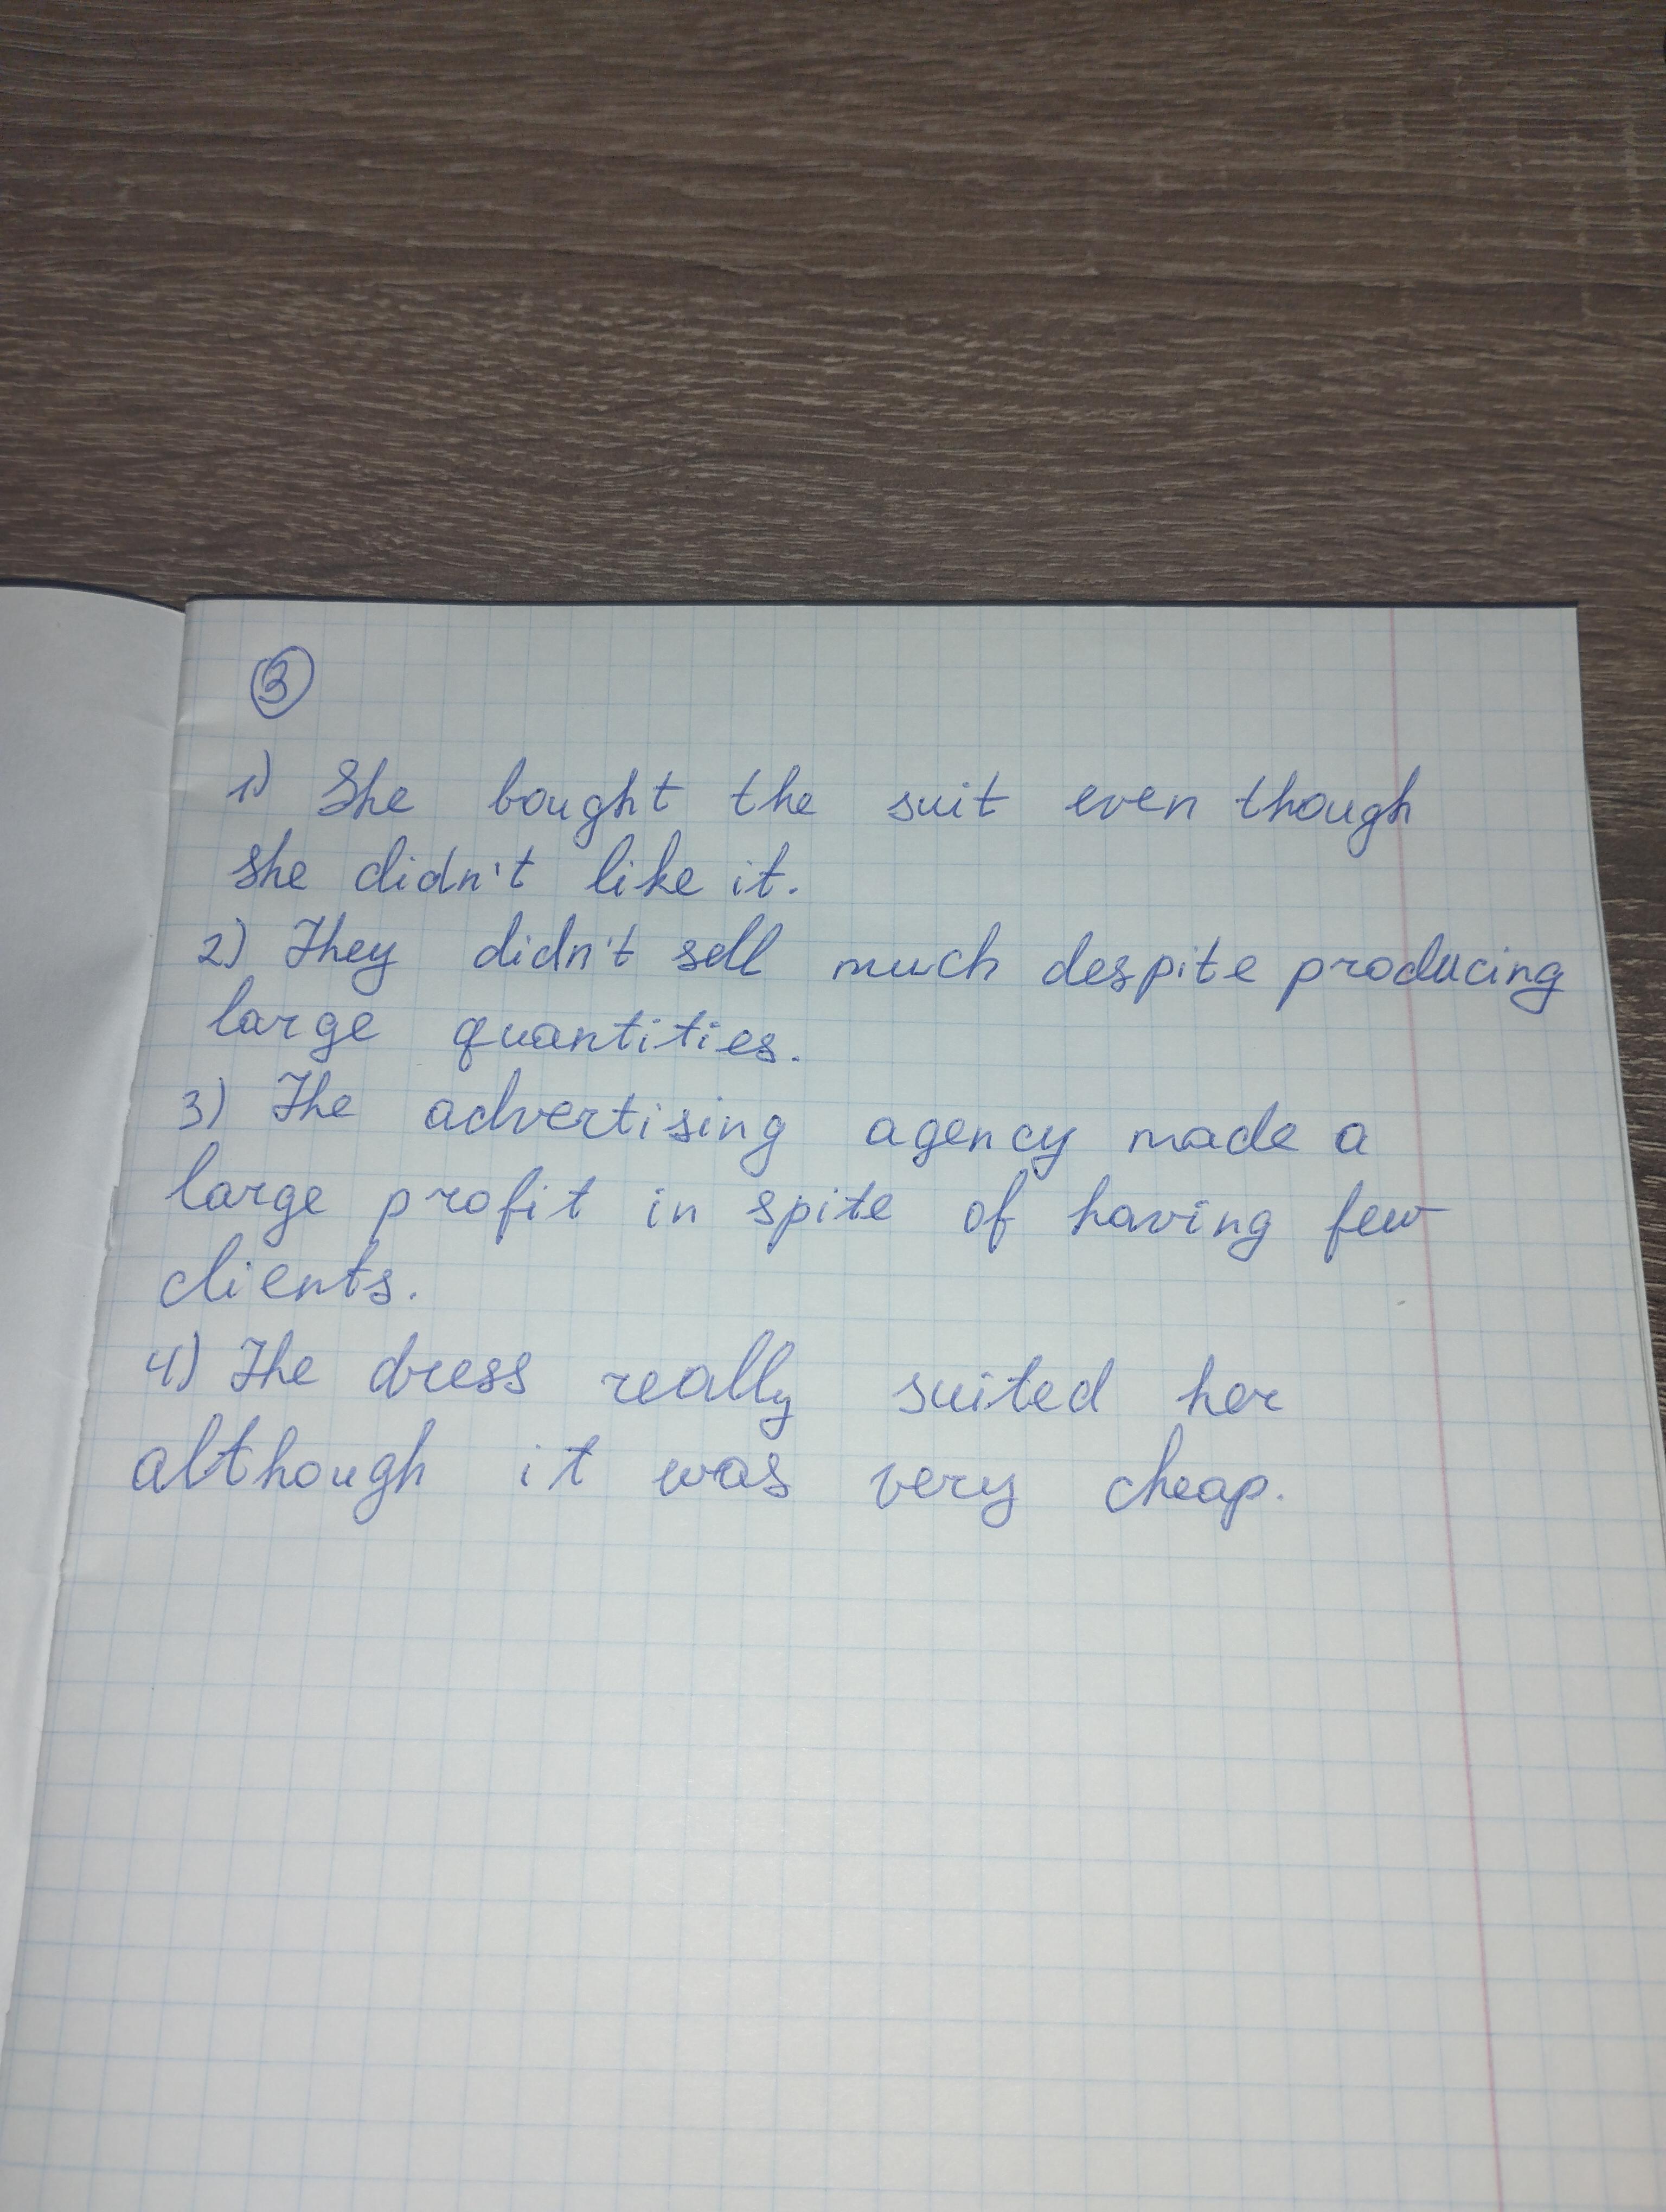 3
1) She bought the suit even though
she didn't like it.
2) They didn't sell much despite producing
large quantities.
3) The advertising agency made a
large profit in spite of having few
clients.
4) The dress really suited her
although it was very cheap.